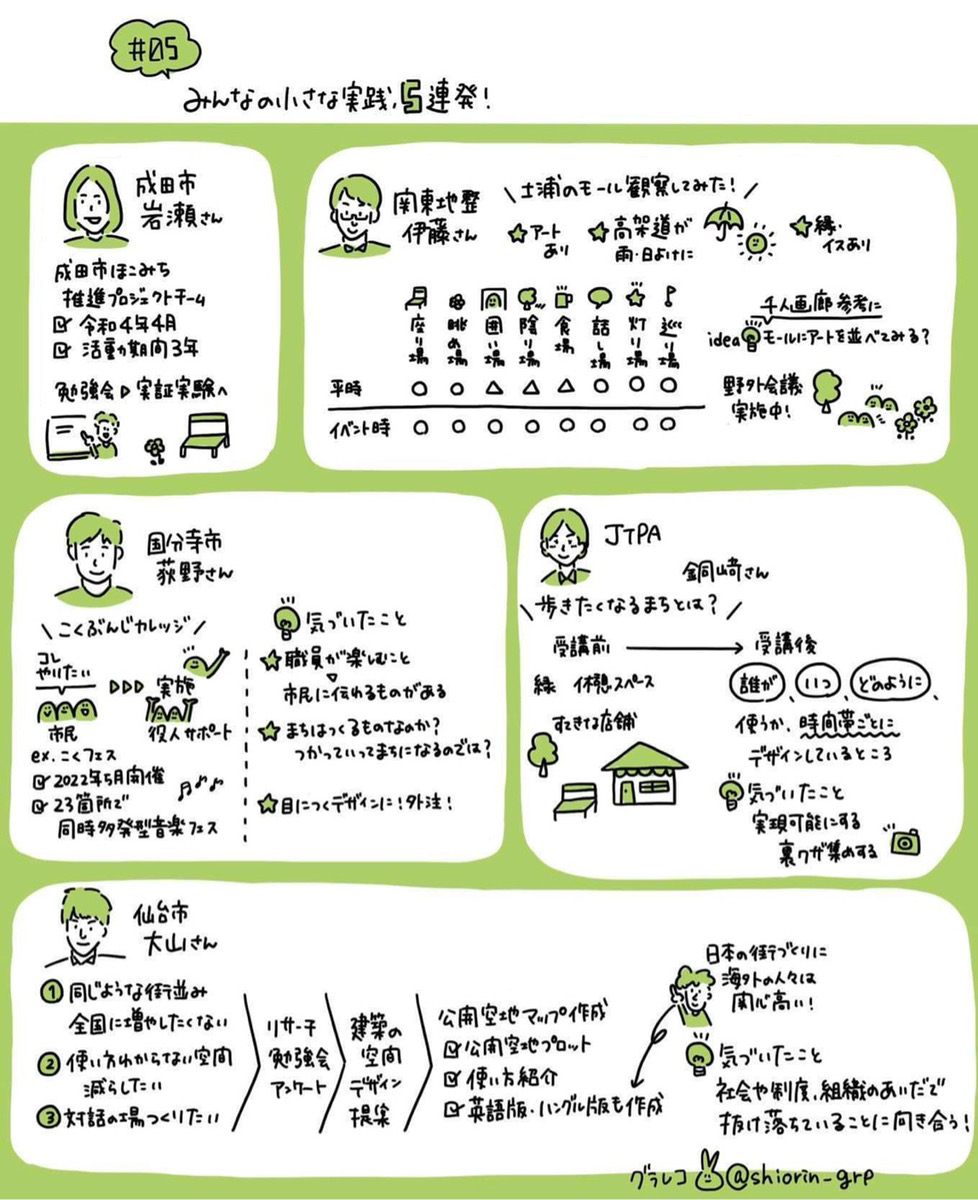 #05
みんなの小さな実践、5連発!
成田市
岩瀬さん
成田市ほこみち
推進プロジェクトチーム
令和4年4月
活動期間3年
勉強会▷実証実験へ
関東地整
伊藤さん
\土浦のモール観察してみた!/
アート
あり
高架道が
雨・日よけに
縁・
イスあり
座り場
眺め場
囲い場
陰り場
食場
話し場
灯り場
巡り場
平時 ○ ○ △ △ △ ○ ○ ○
イベント時 ○ ○ ○ ○ ○ ○ ○ ○
千人画廊参考に
idea モールにアートを並べてみる?
野外会議
実施中!
国分寺市
荻野さん
\こくぶんじカレッジ/
コレ
やりたい
▷▷▷ 実施
市民
役人サポート
ex. こくフェス
2022年5月開催
23箇所で
同時多発型音楽フェス
気づいたこと
職員が楽しむこと
市民に伝わるものがある
まちはつくるものなのか?
つかっていってまちになるのでは?
目につくデザインに!外注!
JTPA
\歩きたくなるまちとは?/
受講前 → 受講後
緑 休憩スペース
すてきな店舗
誰が、いつ、どのように、
使うか、時間帯ごとに
デザインしているところ
気づいたこと
実現可能にする
裏ワザ集めする
仙台市
大山さん
① 同じような街並み
全国に増やしたくない
② 使い方わからない空間
減らしたい
③ 対話の場つくりたい
リサーチ
勉強会
アンケート
建築の
空間
デザイン
提案
公開空地マップ作成
公開空地プロット
使い方紹介
英語版・ハングル版も作成
日本の街づくりに
海外の人々は
関心高い!
気づいたこと
社会や制度、組織のあいだで
抜け落ちていることに向き合う!
グラレコ @shiorin_grp